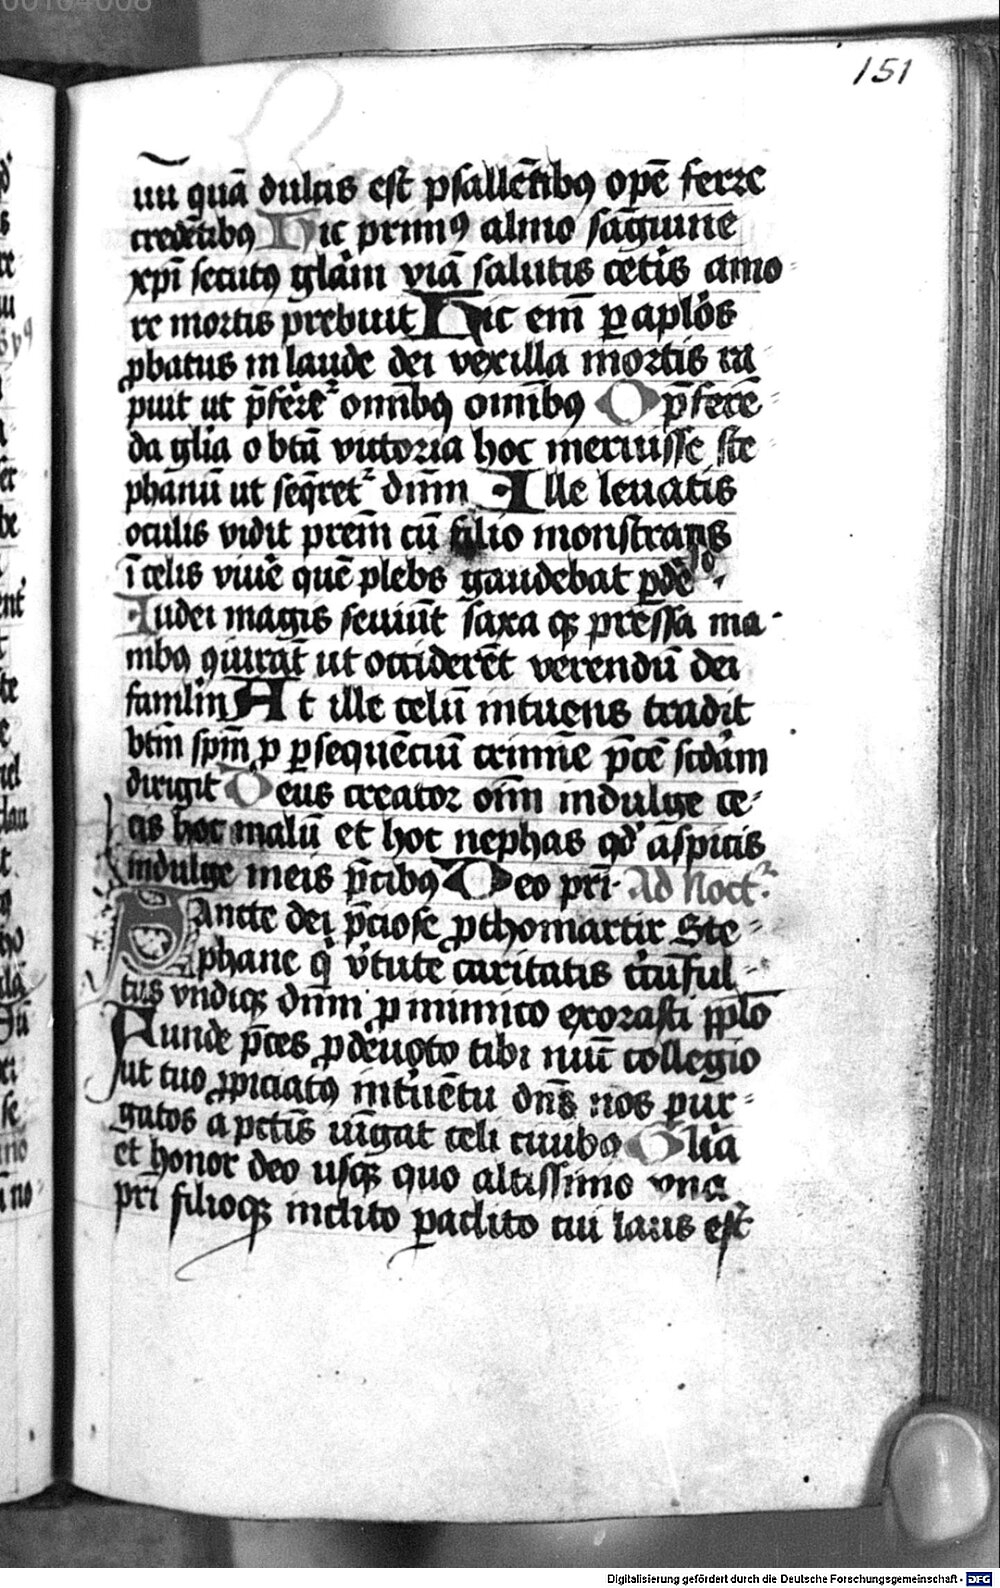 151
uii quā dulcis est psallētibꝯ opē ferre
credētibꝯ Hic primꝯ almo sāguine
xp̄i secutꝯ gl̄am viā salutis cetis amo
re mortis prebuit Hic em̄ ꝑ apl̄os
ꝓbatus in laude dei vexilla mortis ra
puit ut p̄ferret᷑ om̄ibꝯ om̄ibꝯ O p̄ferē
da gl̄ia o bt̄a victoria hoc meruisse ste
phanū ut seq̄ret᷑ dn̄m Ille leuatis
oculis vidit prem̄ cū filio monstrans
ī celis viuē quē plebs gaudebat ꝑdē
Iudei magis seuiūt saxa qꝫ pressa ma
nibꝯ ꝯcurrāt ut occiderēt verendū dei
famlm̄ At ille celū intuens tradit
btm̄ spm̄ ꝓ ꝑsequēciū crimīe p̄ce scdām
dirigit Deus creator om̄ indulge ce
cis hoc malū et hoc nephas qd̓ aspicis
indulge meis p̄cibꝯ Deo pri̅ Ad Noct᷑
Sancte dei p̄ciose ꝓthomartir Ste
phane q̇ v̓tute caritatis c̓cūful
tus vndiqꝫ dn̄m ꝓ inimico exorasti pplo
Funde p̄ces ꝓ deuoto tibi nūc collegio
ut tuo ꝓpiciatꝯ int̓uētu dn̄s nos pur
gatos a pctīs iūgat celi ciuibꝯ Gl̄ia
et honor deo usqꝫ quo altissimo vna
pri̅ filioqꝫ inclito paclito cui laus est
Digitalisierung gefördert durch die Deutsche Forschungsgemeinschaft - DFG